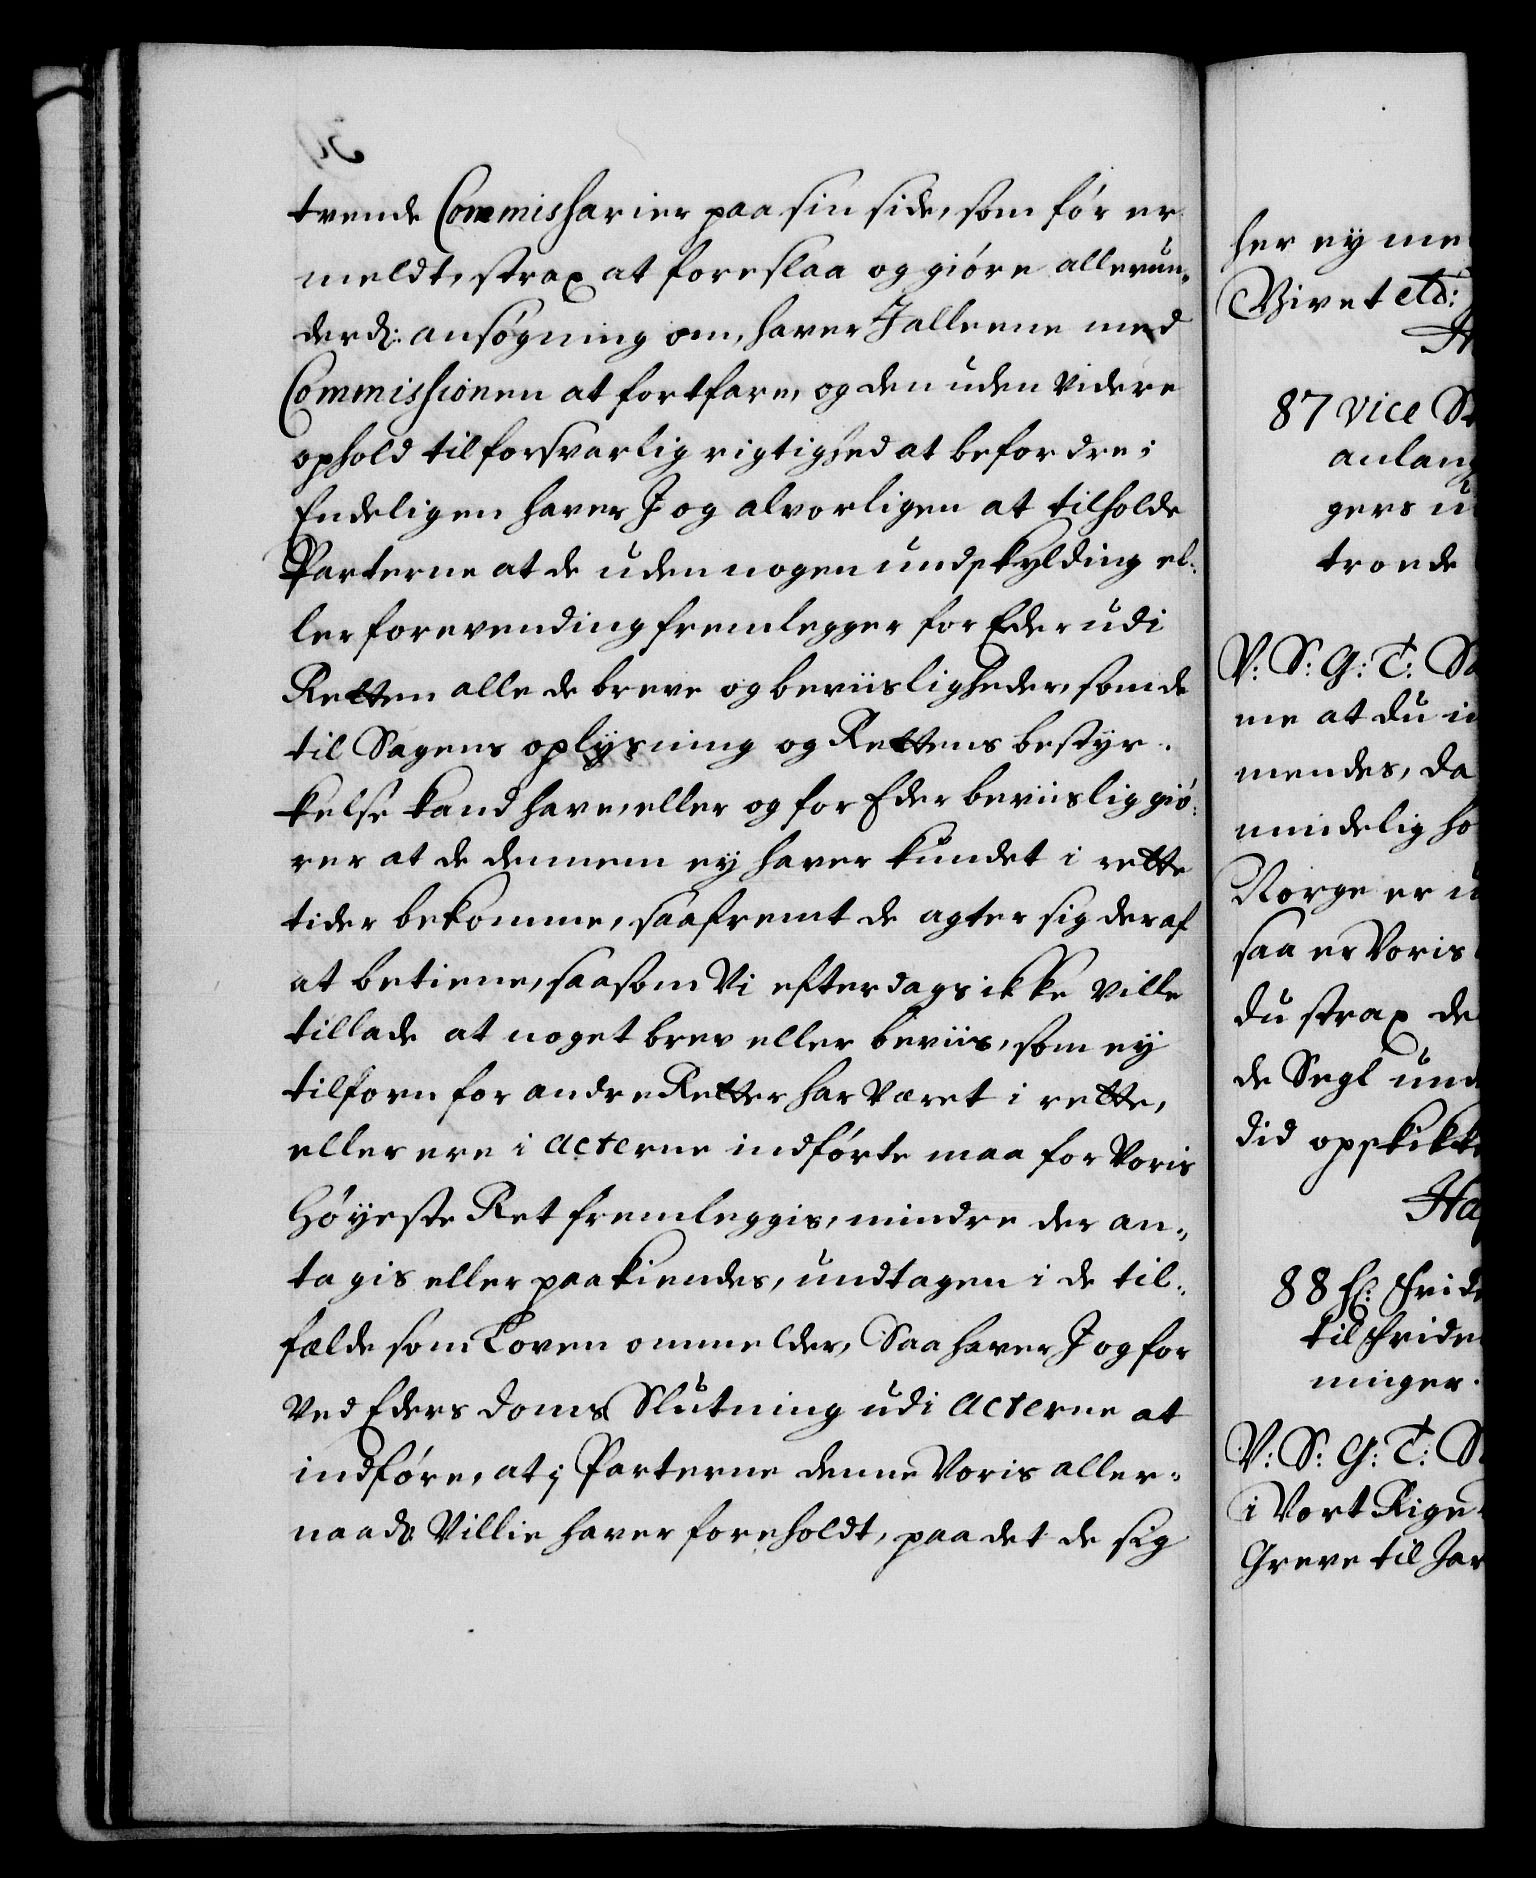 trende Commissarier paa sin side, som før er
meldt, strax at foreslaa og giøre allerun-
derd: ansøgning om, haver I alleene med
Commissionen at fortfare, og den uden videre
ophold til forsvarlig rigtighed at befordre;
Endeligen haver I og alvorligen at tilholde
Parterne at de uden nogen undskylding el-
ler forevending fremlegger for Eder udi
Retten alle de breve og beviisligheder, som de
til Sagens oplysning og Rettens bestyr-
kelse kand have, eller og for Eder beviislig giø-
rer at de dennem ey haver kundet i rette
tider bekomme, saafremt de agter sig deraf
at betiene, saasom Vi efterdags ikke ville
tillade at noget brev eller beviis, som ey
tilforn for andre Retter har været i rette,
eller ere i Acterne indførte maa for Voris
Høyeste Ret fremleggis, mindre der an-
tagis eller paakiendes, undtagen i de til-
fælde som Loven ommelder, Saa haver I og for
ved Eders doms Slutning udi Acterne at
indføre, at j Parterne denne Voris aller-
naads Villie haver foreholdt, paa det de sig
her ey me
Bivet etc:
87 Vice St
anlang
gers u
troende
V: S: G: T: Sa
me at du i
mendes, da
mindelig ho
Norge er u
saa er Voris
du strax de
de Segl und
did opskikk
Ha
88 Fride
til Fride
ninger.
V: S: G: T: S
i Vort Rige
Greve til Jar